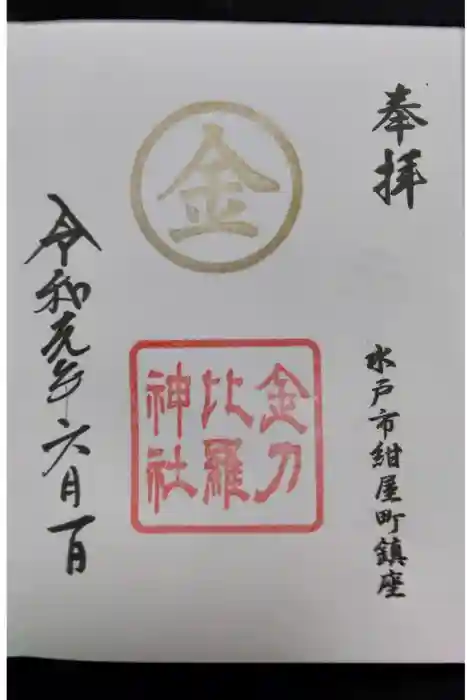 奉拝
水戸市紺屋町鎮座
金
金刀
比羅
神社
令和元年六月一日